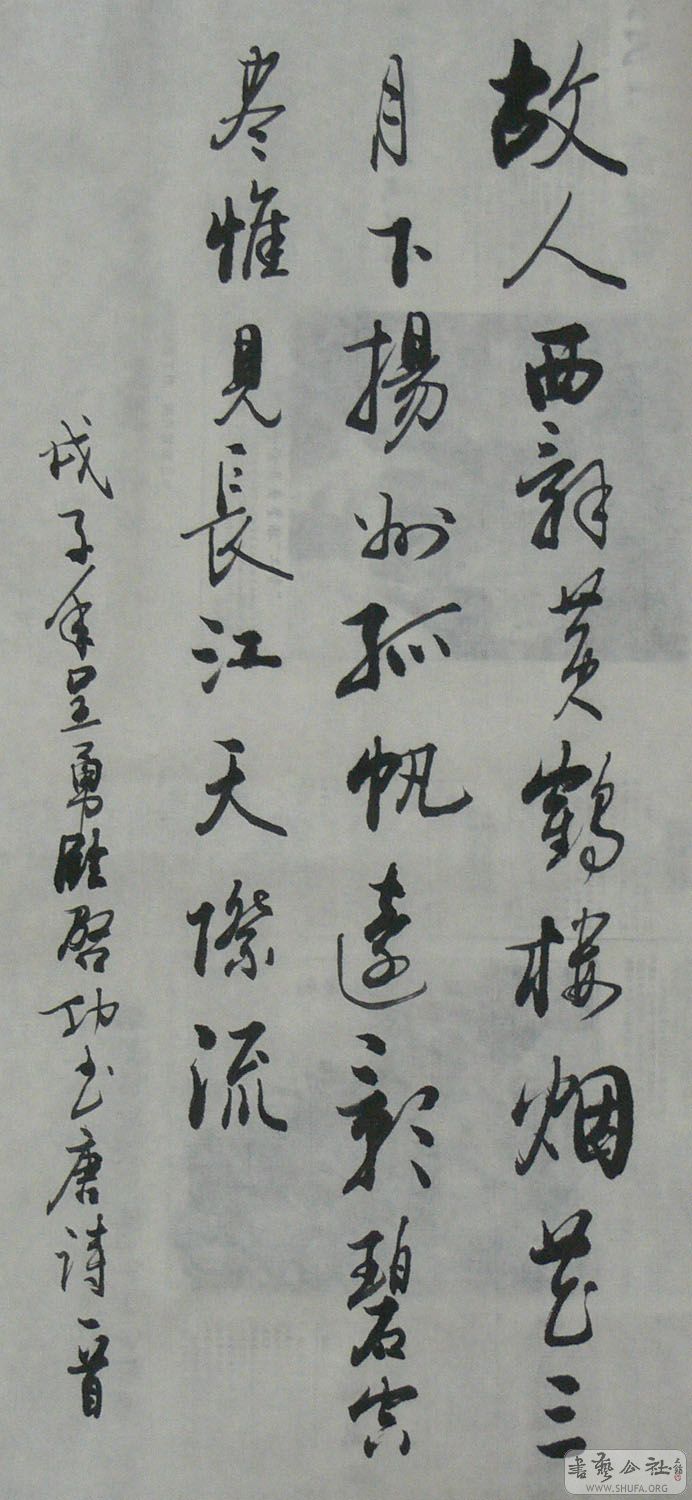 故人西辞黄鹤楼烟花三
月下揚州孤帆遠影碧空
尽惟見長江天際流
戊子年呈勇 啓功书唐诗一首
書藝公社
WWW.SHUFA.ORG